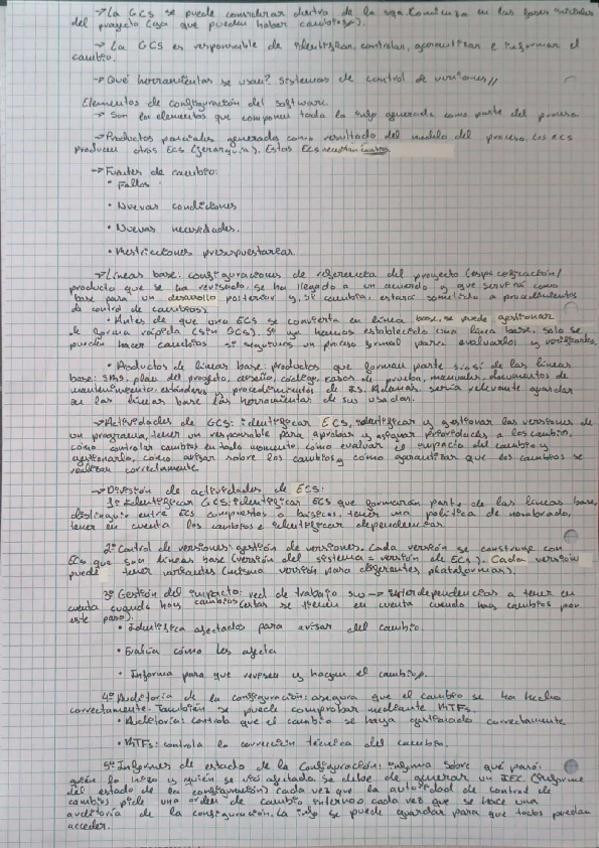 → La GCS se puede considerar dentro de la sqa. Comienza en las fases iniciales
del proyecto (ya que pueden haber cambios).
→ La GCS es responsable de identificar, controlar, garantizar e informar el
cambio.
→ Qué herramientas se usan? Sistemas de control de versiones//
Elementos de configuración del software.
→ Son los elementos que componen toda la info generada como parte del proceso
→ Productos parciales generados como resultado del modelo del proceso. Los ECS
producen otros ECS (jerarquía). Estos ECS
→ Fuentes de cambio:
• Fallos
• Nuevas condiciones
• Nuevas necesidades.
• Restricciones presupuestarias
→ Líneas base: configuraciones de referencia del proyecto (especificación/
producto que se ha revisado, se ha llegado a un acuerdo y que servirá como
base para un desarrollo posterior y, si cambia, estará sometido a procedimientos
de control de cambios).
• Antes de que una ECS se convierta en línea base, se puede gestionar
de forma rápida (sin GCS). Si ya hemos establecido una línea base, solo se
pueden hacer cambios si seguimos un proceso formal para evaluarlos y verificarlos.
• Productos de línea base: productos que forman parte de las líneas
base: SRS, plan del proyecto, diseño, código, casos de prueba, manuales, documentos de
mantenimiento, estándares y procedimientos de IS. Además, sería relevante guardar
en las líneas base las herramientas de sw usadas.
→ Actividades de GCS: identificar ECS, identificar y gestionar las versiones de
un programa, tener un responsable para aprobar y asignar prioridades a los cambios,
cómo controlar cambios en todo momento, cómo evaluar el impacto del cambio y
gestionarlo, cómo avisar sobre los cambios y cómo garantizar que los cambios se
realizan correctamente.
→ División de actividades de ECS:
1º Identificar GCS: identificar ECS que formarán parte de las líneas base,
distinguir entre ECS compuestos o básicos, tener una política de nombrado,
tener en cuenta los cambios e identificar dependencias.
2º Control de versiones: gestión de versiones. Cada versión se construye con
ECS que son líneas base (versión del sistema = versión de ECS). Cada versión
puede tener variantes (misma versión para diferentes plataformas).
3º Gestión del impacto: red de trabajo sw → interdependencias a tener en
cuenta cuando hay cambios (estas se tienen en cuenta cuando hay cambios por
este paso).
• Identifica afectados para avisar del cambio.
• Evalúa cómo les afecta
• Informa para que revisen y hagan el cambio.
4º Auditoría de la configuración: asegura que el cambio se ha hecho
correctamente. También se puede comprobar mediante RTFs.
• Auditoría: controla que el cambio se haya gestionado correctamente
• RTFs: controla la corrección técnica del cambio.
5º Informes de estado de la configuración: informa sobre qué pasó,
quién lo hizo y quién se vio afectado. Se debe de generar un IEC (informe
del estado de la configuración) cada vez que la autoridad de control de
cambios pide una orden de cambio interno o cada vez que se hace una
auditoría de la configuración. La info se puede guardar para que todos puedan
acceder.